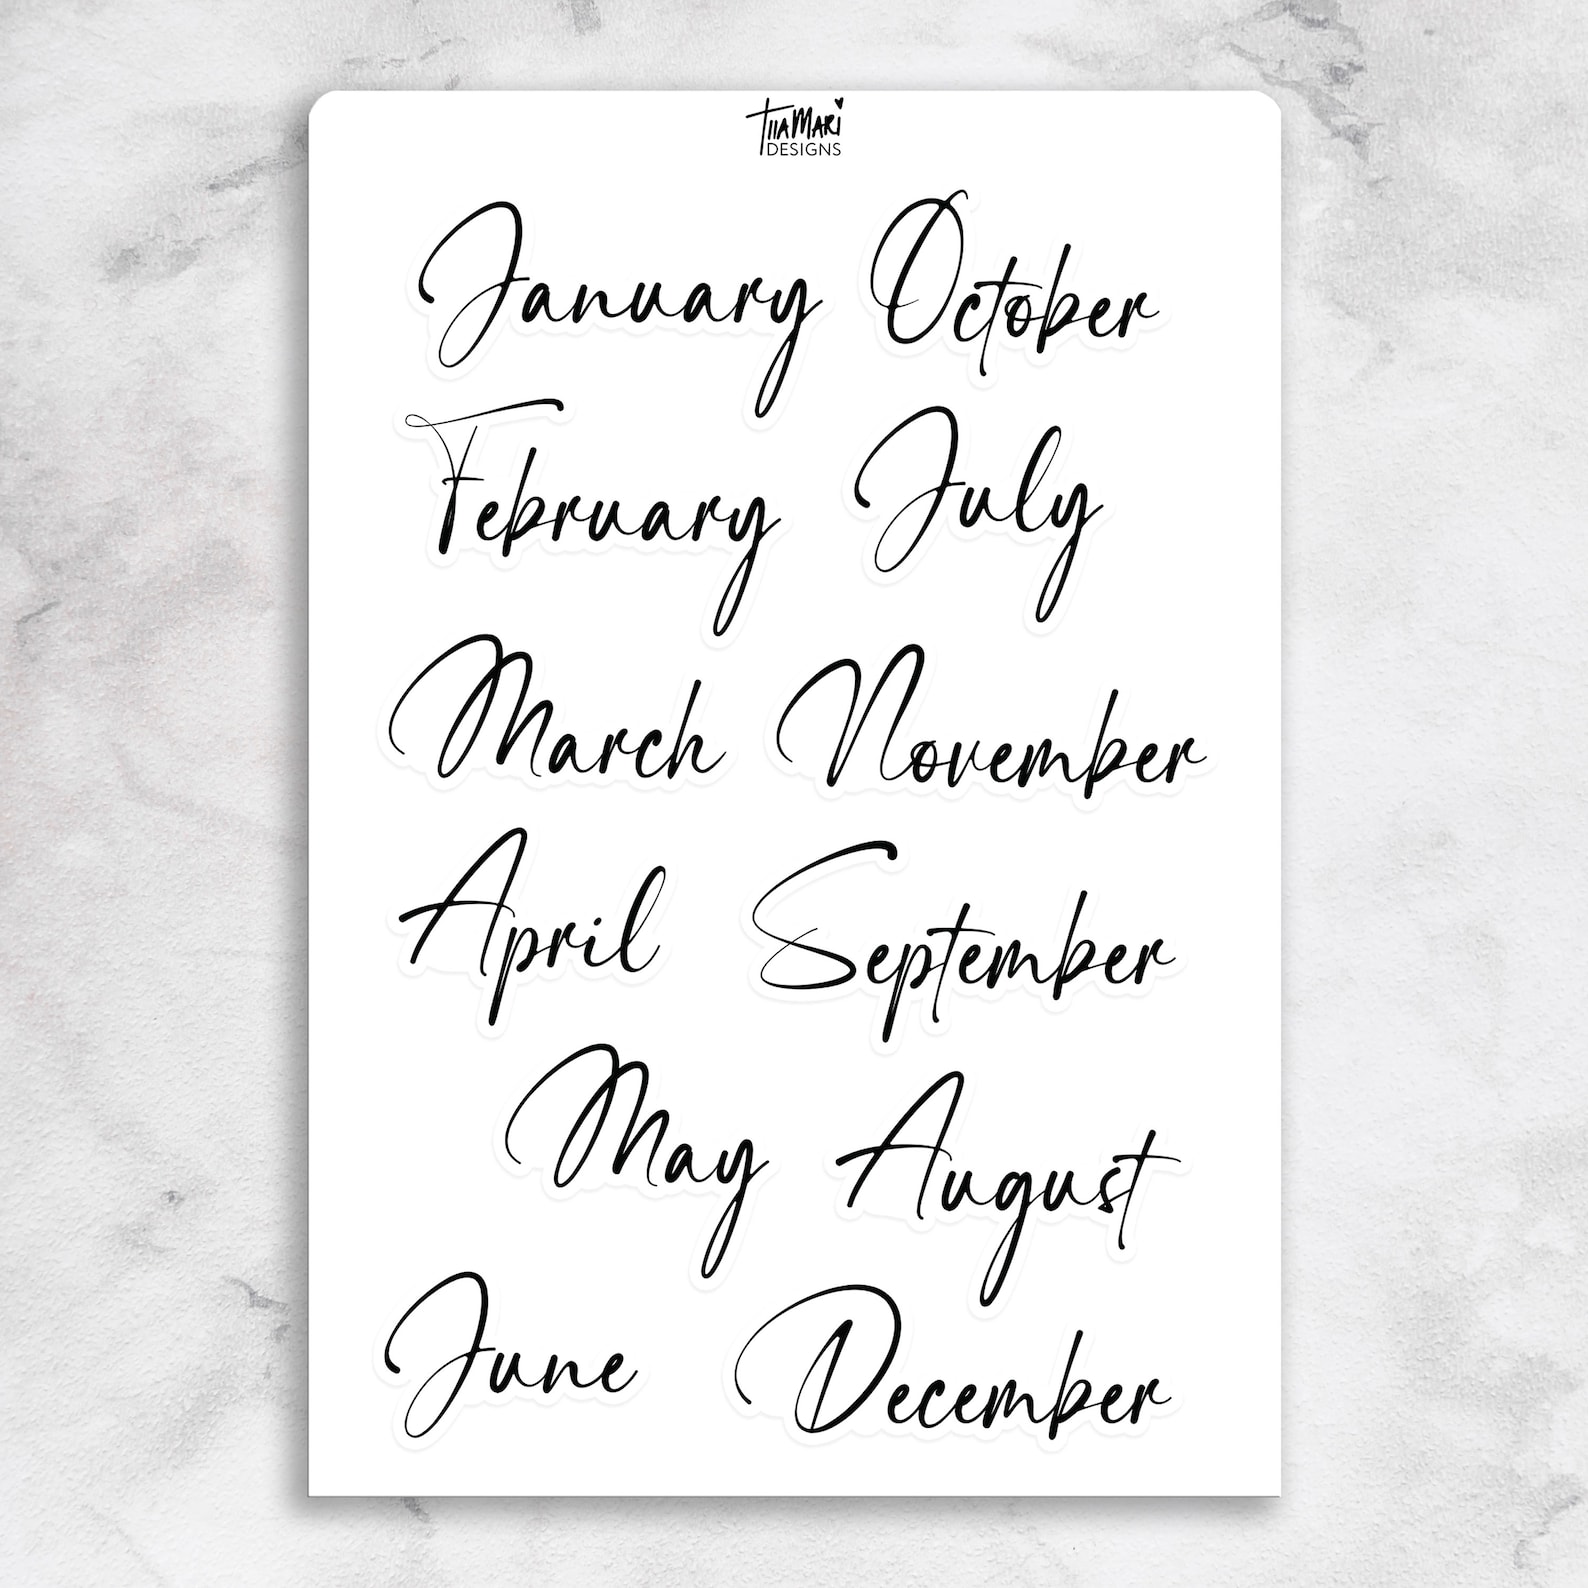 TIIAMARI
DESIGNS
January October
February July
March November
April September
May August
June December